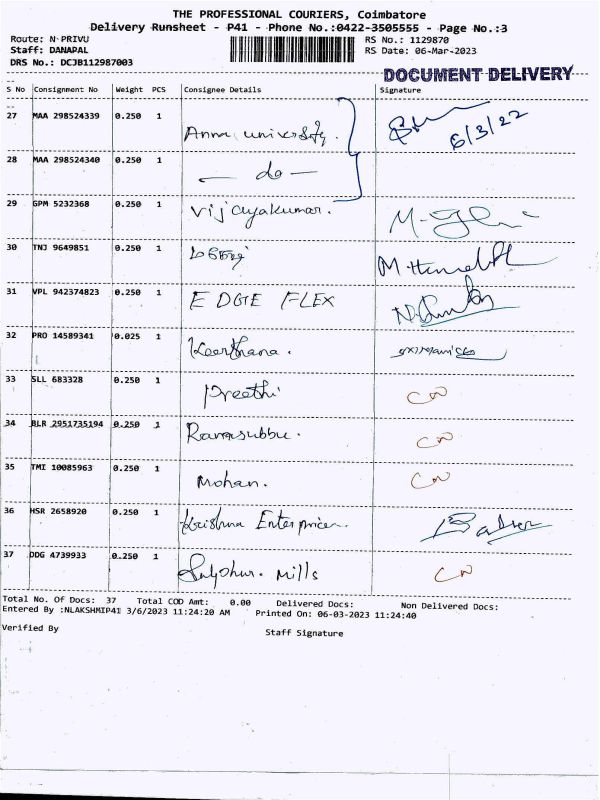 THE PROFESSIONAL COURIERS, Coimbatore
Delivery Runsheet - P41 - Phone No.:0422-3505555 - Page No.:3
Route: N PRIVU RS No.: 1129870
Staff: DANAPAL RS Date: 06-Mar-2023
DRS No.: DCJB112987003
DOCUMENT DELIVERY
S No Consignment No Weight PCS Consignee Details Signature
27 MAA 298524339 0.250 1 Anna university. 6/3/22
28 MAA 298524340 0.250 1 — do —
29 GPM 5232368 0.250 1 Vijayakumar.
30 TNJ 9649851 0.250 1
31 VPL 942374823 0.250 1 EDGE FLEX
32 PRO 14589341 0.025 1 Keerthana.
33 SLL 683328 0.250 1 Preethi CN
34 BLR 2951735194 0.250 1 Ramasubbu. CN
35 TMI 10085963 0.250 1 Mohan. CN
36 HSR 2658920 0.250 1 Krishna Enterprices.
37 DDG 4739933 0.250 1 Sulphur. Mills CN
Total No. Of Docs: 37 Total COD Amt: 0.00 Delivered Docs: Non Delivered Docs:
Entered By :NLAKSHMIP41 3/6/2023 11:24:20 AM Printed On: 06-03-2023 11:24:40
Verified By Staff Signature